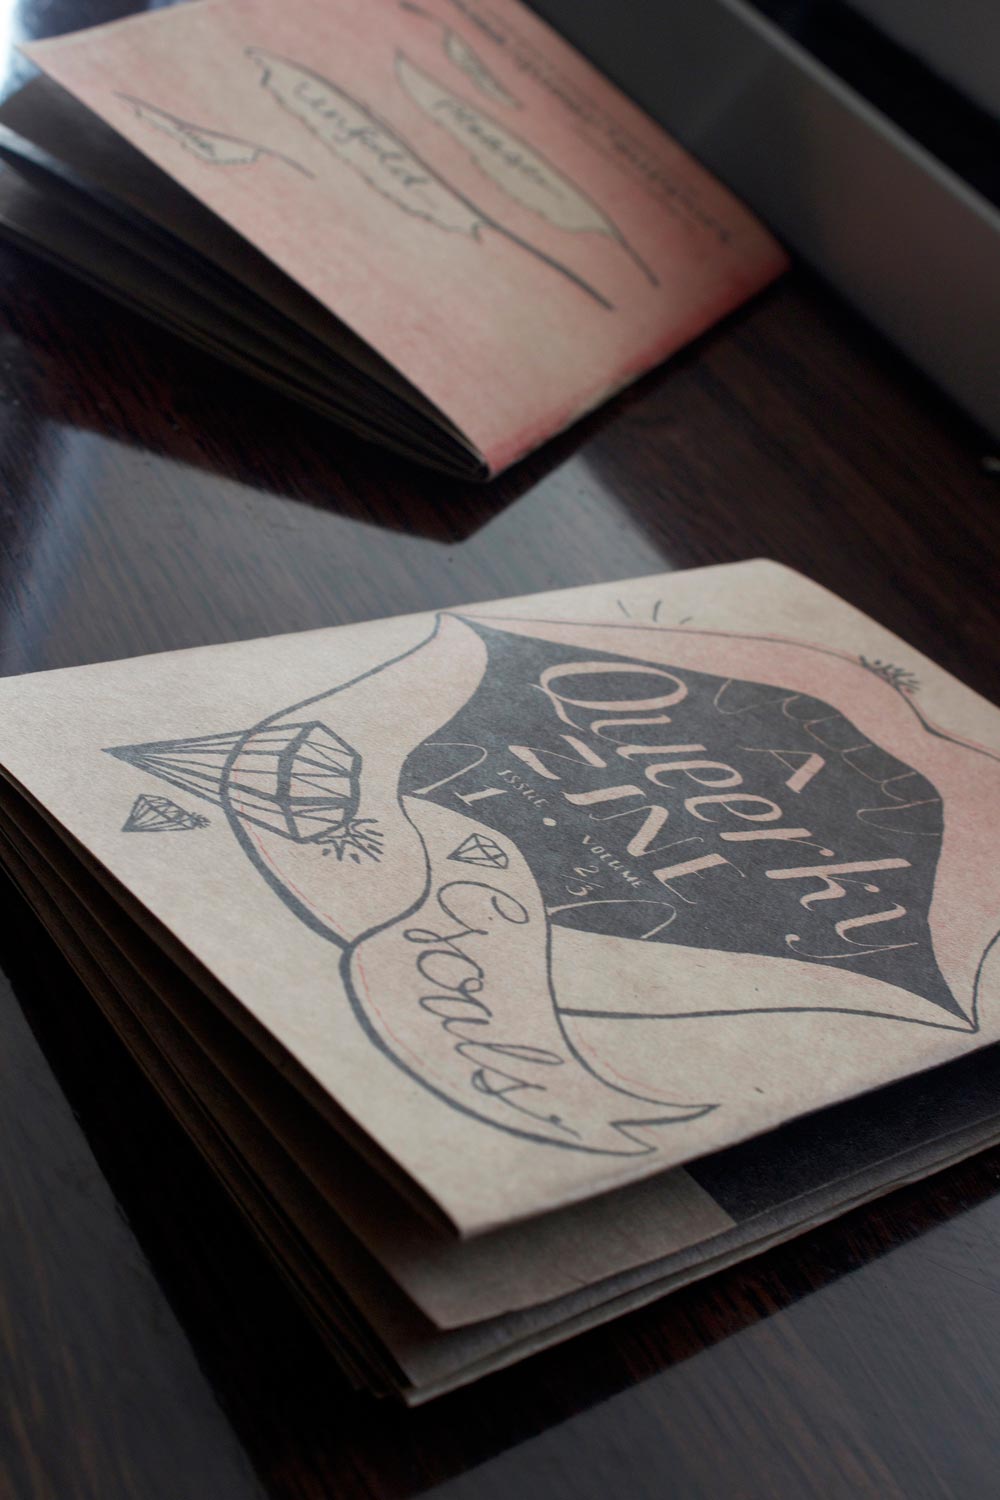 Please
unfold
A
Queerky
ZINE
ISSUE • VOLUME
1 2/3
Goals